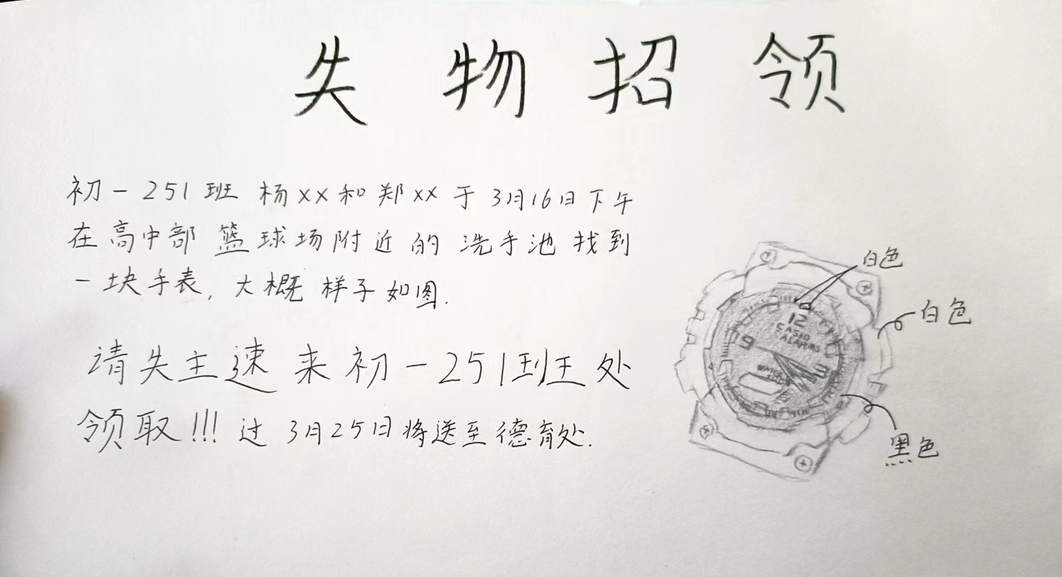 失物招领
初一251班 杨xx和郑xx于3月16日下午
在高中部 篮球场附近的 洗手池 找到
一块手表, 大概 样子如图.
请失主速来初一251班处
领取!!! 过 3月25日将送至德育处.
白色
白色
黑色
12
CASIO
ALARM
9
3